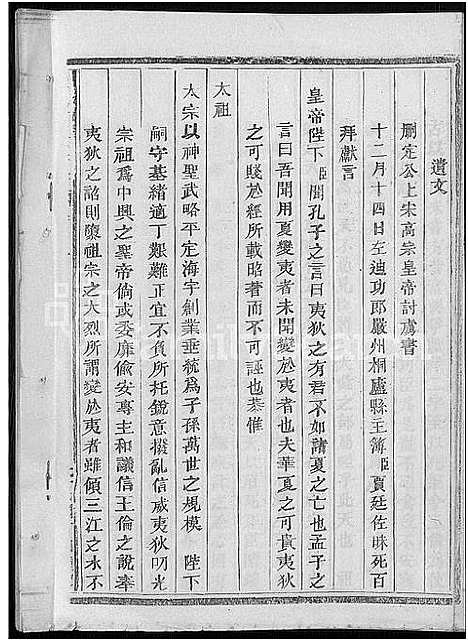 遺文
刪定公上宋高宗皇帝討虜書
十二月十四日左迪功郎嚴州桐廬縣主簿臣夏廷佐昧死百
拜獻言
皇帝陛下臣聞孔子之言曰夷狄之有君不如諸夏之亡也孟子之
言曰吾聞用夏變夷者未聞變於夷者也夫華夏之可貴夷狄
之可賤於經所載昭者而不可誣也恭惟
太祖
太宗以神聖武略平定海宇創業垂統為子孫萬世之規模 陛下
嗣守基緒適丁艱難正宜不負所托銳意撥亂信威夷狄叨光
宗祖為中興之聖帝倘或委靡偷安專主和議信王倫之說奉
夷狄之詔則隳祖宗之大烈所謂變於夷者雖傾三江之水不